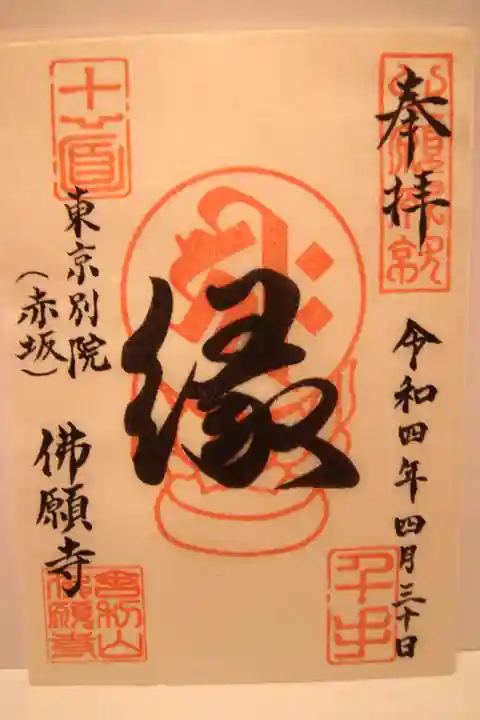 奉拝
令和四年四月三十日
縁
東京別院
(赤坂)
佛願寺